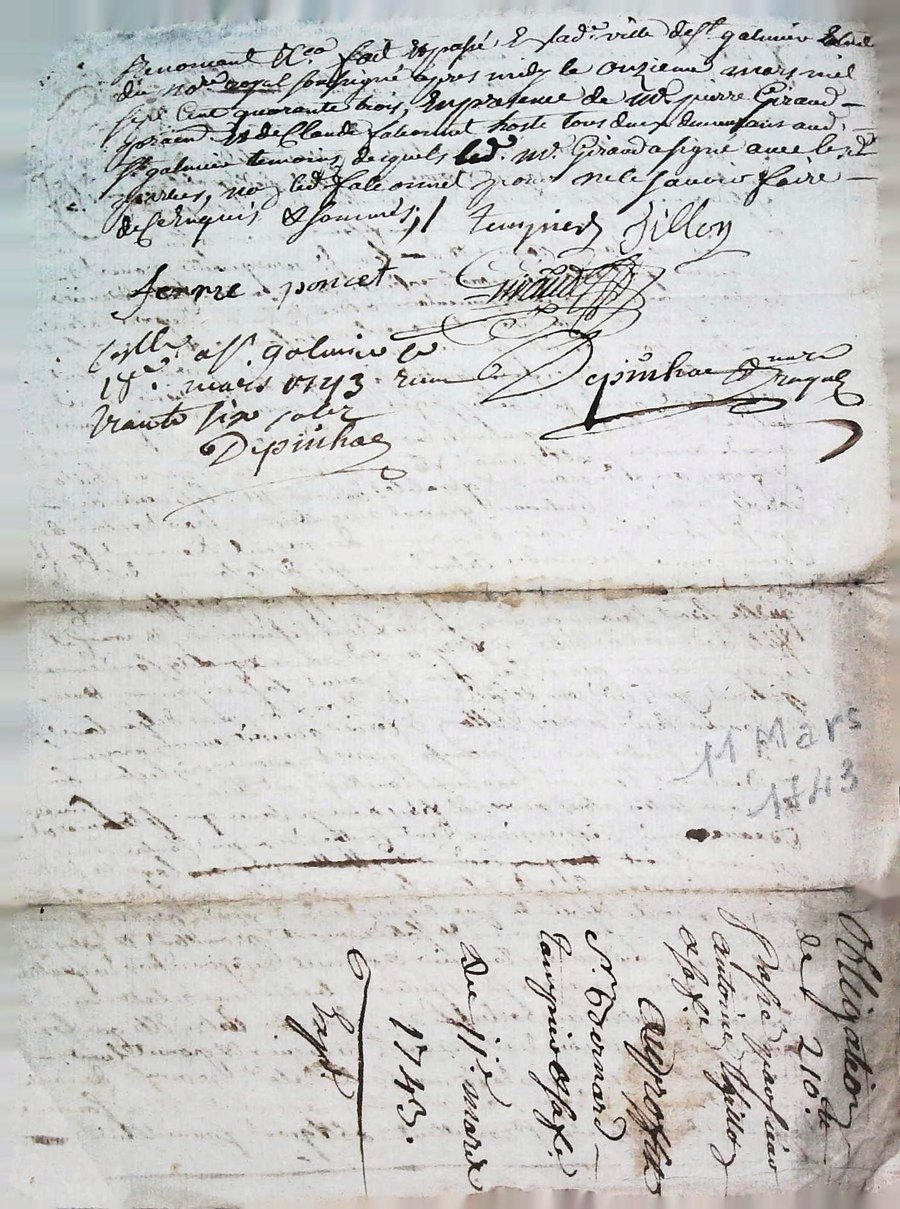 Renonciant &ca fait et passé, en lad. ville de st galmier Etude
du nore royal soussigné apres midy le onzieme mars mil
sept Cent quarante trois, En presence de Mr. pierre Giraud
et de Claude falconnet hoste tous deux demeurans aud.
st galmier temoins, desquels led. Mr. Giraud a signé avec les d.
parties, non led. falconnet pour ne le savoir faire
de ce Enquis & sommés,
tempier fillon
femme poncet
Giraud
Depinhac nore royal
Scellé a st. galmier le
18e. mars 1743. recu
trante six sols
Depinhac
11 Mars
1743
Obligation
de £ 210.
Passée par sieur
antoine fillon
& sa fe
Au proffit
sr. Bernard
tampier & sa fe.
Du 11e. mars
1743.
Exp.